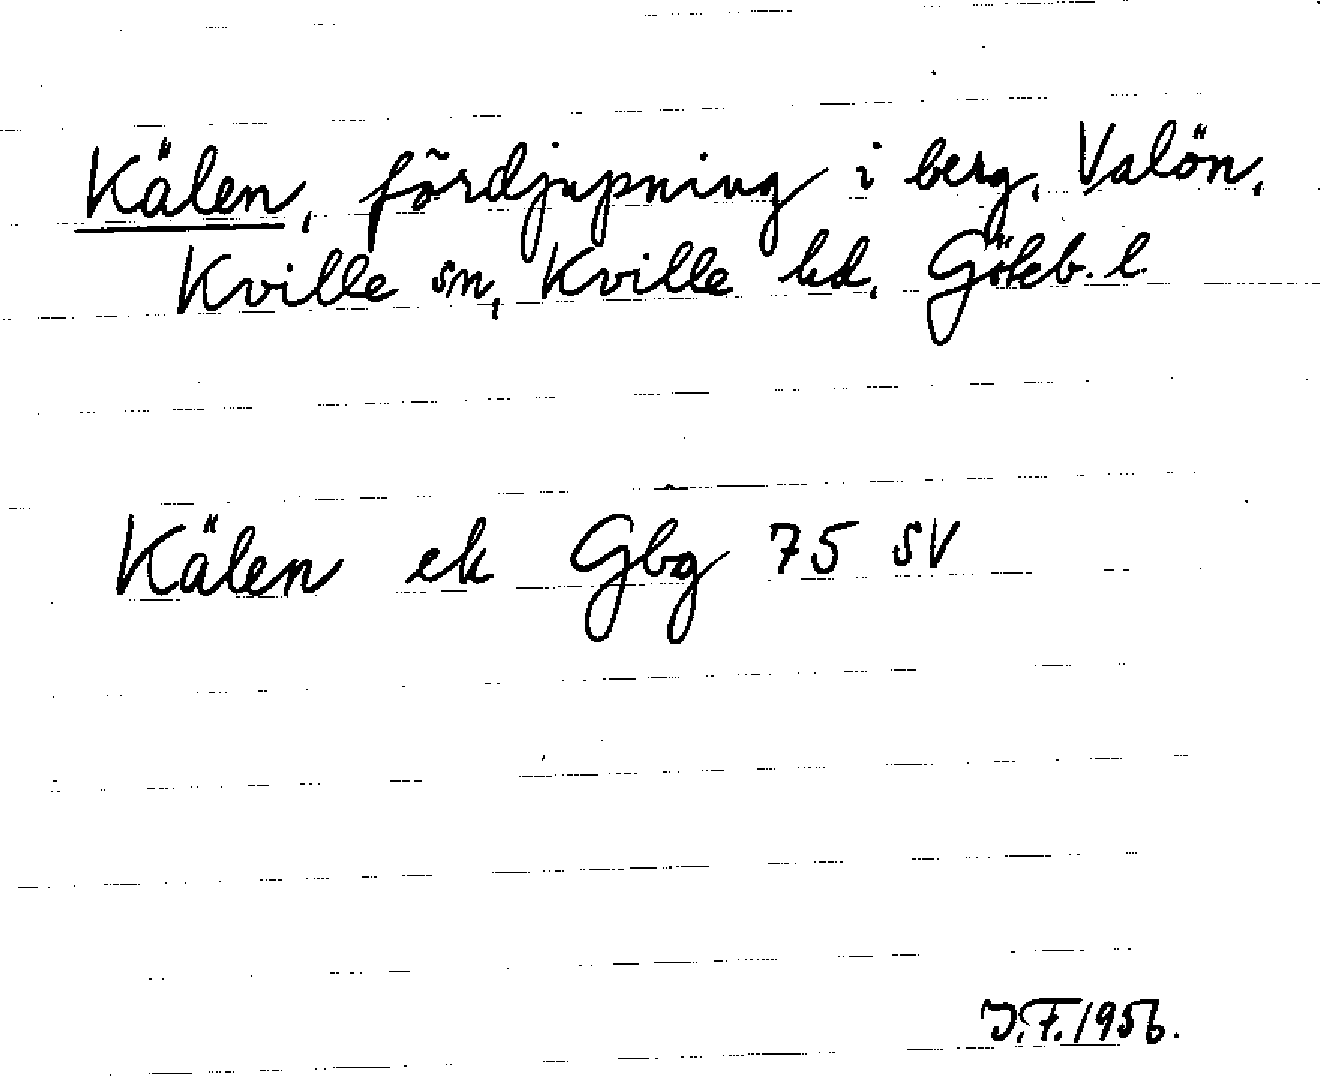 Kälen, fördjupning i berg, Valön,
Kville sn, Kville hd, Göteb. l.
Kälen ek Gbg 75 SV
J.F. 1956.